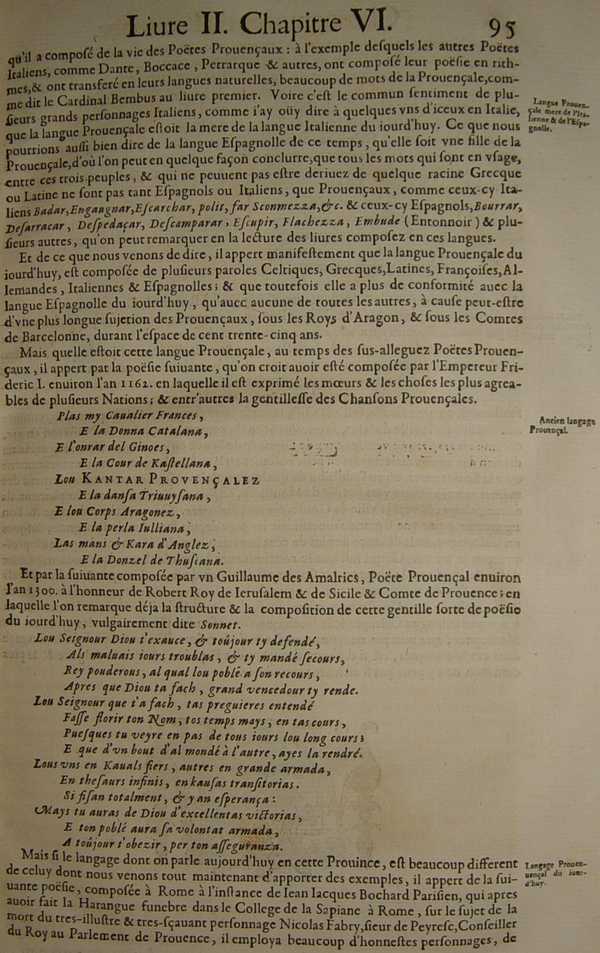 Liure II. Chapitre VI. 95
qu'il a composé de la vie des Poëtes Prouençaux : à l'exemple desquels les autres Poëtes
Italiens, comme Dante, Boccace, Petrarque & autres, ont composé leur poësie en rich-
mes, & ont transferé en leurs langues naturelles, beaucoup de mots de la Prouençale, com-
me dit le Cardinal Bembus au liure premier. Voire c'est le commun sentiment de plu-
sieurs grands personnages Italiens, comme i'ay oüy dire à quelques vns d'iceux en Italie,
que la langue Prouençale estoit la mere de la langue Italienne du iourd'huy. Ce que nous
pourrions aussi bien dire de la langue Espagnolle de ce temps, qu'elle soit vne fille de la
Prouençale, d'où l'on peut en quelque façon conclurre, que tous les mots qui sont en vsage,
entre ces trois peuples, & qui ne peuuent pas estre deriuez de quelque racine Grecque
ou Latine ne sont pas tant Espagnols ou Italiens, que Prouençaux, comme ceux-cy Ita-
liens Badar, Engaugnar, Escarchar, polit, far Sconmezza, &c. & ceux-cy Espagnols, Bourrar,
Desarracar, Despedaçar, Descamparar, Escupir, Flachezza, Embude (Entonnoir) & plu-
sieurs autres, qu'on peut remarquer en la lecture des liures composez en ces langues.
Et de ce que nous venons de dire, il appert manifestement que la langue Prouençale du
iourd'huy, est composée de plusieurs paroles Celtriques, Grecques, Latines, Françoises, Al-
lemandes, Italiennes & Espagnolles; & que toutefois elle a plus de conformité auec la
langue Espagnolle du iourd'huy, qu'auec aucune de toutes les autres, à cause peut-estre
d'vne plus longue sujetion des Prouençaux, sous les Roys d'Aragon, & sous les Comtes
de Barcelonne, durant l'espace de cent trente-cinq ans.
Mais quelle estoit cette langue Prouençale, au temps des sus-alleguez Poëtes Prouen-
çaux, il appert par la poësie suiuante, qu'on croit auoir esté composée par l'Empereur Fri-
deric I. enuiron l'an 1162. en laquelle il est exprimé les mœurs & les choses les plus agrea-
bles de plusieurs Nations; & entr'autres la gentillesse des Chansons Prouençales.
Plas my Caualier Frances,
E la Donna Catalana,
E l'onrar del Ginoes,
E la Cour de Kastellana,
Lou KANTAR PROVENÇALEZ
E la dansa Triuuysana,
E lou Corps Aragonez,
E la perla Iulliana,
Las mans & Kara d'Anglez,
E la Donzel de Thusçana.
Et par la suiuante composée par vn Guillaume des Amalrics, Poëte Prouençal enuiron
l'an 1300. à l'honneur de Robert Roy de Ierusalem & de Sicile & Comte de Prouence; en
laquelle l'on remarque déja la structure & la composition de cette gentille sorte de poësie
du iourd'huy, vulgairement dite Sonnet.
Lou Seignour Diou t'exauce, & toûjour ty defendé,
Als maluais iours troublas, & ty mandé secours,
Rey pouderous, al qual lou poblé a son recours,
Apres que Diou ta fach, grand vencedour ty rende.
Lou Seignour que t'a fach, tas preguieres entendé
Fasse florir ton Nom, tos temps mays, en tas cours,
Puesques tu veyre en pas de tous iours lou long cours:
E que d'vn bout d'al mondé à l'autre, ayes la rendré.
Lous vns en Kauals fiers, autres en grande armada,
En thesaurs infinis, en kausas transitorias.
Si fisan totalment, & y an esperança:
Mays tu auras de Diou d'excellentas victorias,
E ton poblé aura sa volontat armada,
A toûjour t'obezir, per ton asseguranza.
Mais si le langage dont on parle aujourd'huy en cette Prouince, est beaucoup different
de celuy dont nous venons tout maintenant d'apporter des exemples, il appert de la sui-
uante poësie, composée à Rome à l'instance de Iean Iacques Bochard Parisien, qui apres
auoir fait la Harangue funebre dans le College de la Sapiane à Rome, sur le sujet de la
mort du tres-illustre & tres-sçauant personnage Nicolas Fabry, sieur de Peyresc, Conseiller
du Roy au Parlement de Prouence, il employa beaucoup d'honnestes personnages, de
Langue Prouen-
çale mere de l'Ita-
lienne & de l'Espa-
gnolle.
Ancien langage
Prouençal.
Langage Prouen-
uençal du iour-
d'huy.